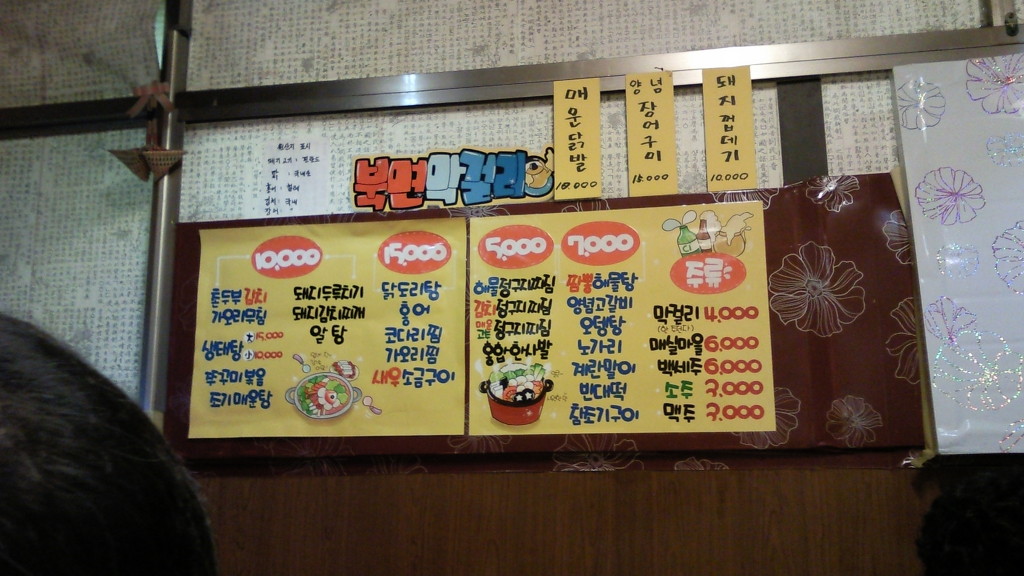 매운닭발
18.000
양념장어구이
15.000
돼지껍데기
10.000
원산지 표시
북면막걸리
10,000
촌두부김치
가오리무침
생태탕 大 15,000
小 10,000
쭈꾸미볶음
조기매운탕
돼지두루치기
돼지김치찌개
알탕
15,000
닭도리탕
홍어
코다리찜
가오리찜
새우소금구이
5,000
해물정구지찌짐
김치정구지찌짐
매운고추정구지찌짐
7,000
짬뽕해물탕
양념고갈비
오뎅탕
노가리
계란말이
빈대떡
참조기구이
주류
막걸리 4,000
매실마을 6,000
백세주 6,000
소주 3,000
맥주 3,000